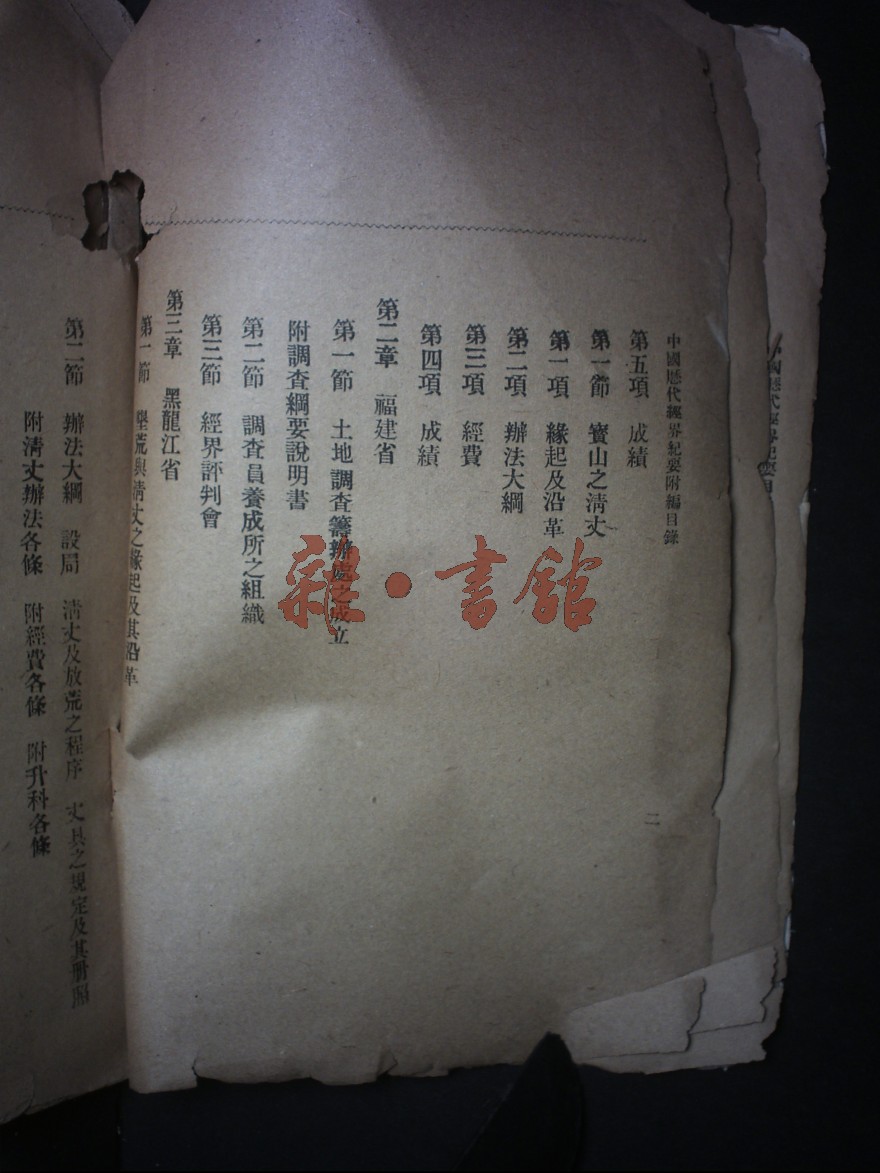 中國歷代經界紀要附編目錄
第五項 成績
第一節 寶山之淸丈
第一項 緣起及沿革
第二項 辦法大綱
第三項 經費
第四項 成績
第二章 福建省
第一節 土地調査籌辦處之成立
附調査綱要說明書
第二節 調査員養成所之組織
第三節 經界評判會
第三章 黑龍江省
第一節 墾荒與淸丈之緣起及其沿革
二
第二節 辦法大綱 設局 淸丈及放荒之程序 丈具之規定及其册照
附淸丈辦法各條 附經費各條 附升科各條
雜·書館